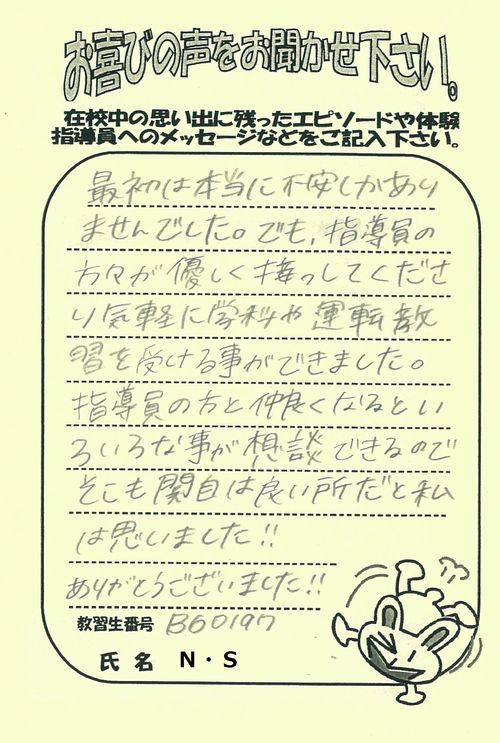 お喜びの声をお聞かせ下さい。
在校中の思い出に残ったエピソードや体験
指導員へのメッセージなどをご記入下さい。
最初は本当に不安しかあり
ませんでした。でも、指導員の
方々が優しく接っしてくださ
り気軽に学科や運転教
習を受ける事ができました。
指導員の方と仲良くなるとい
ろいろな事が想談できるので
そこも関自は良い所だと私
は思いました!!
ありがとうございました!!
教習生番号 B60197
氏名 N・S